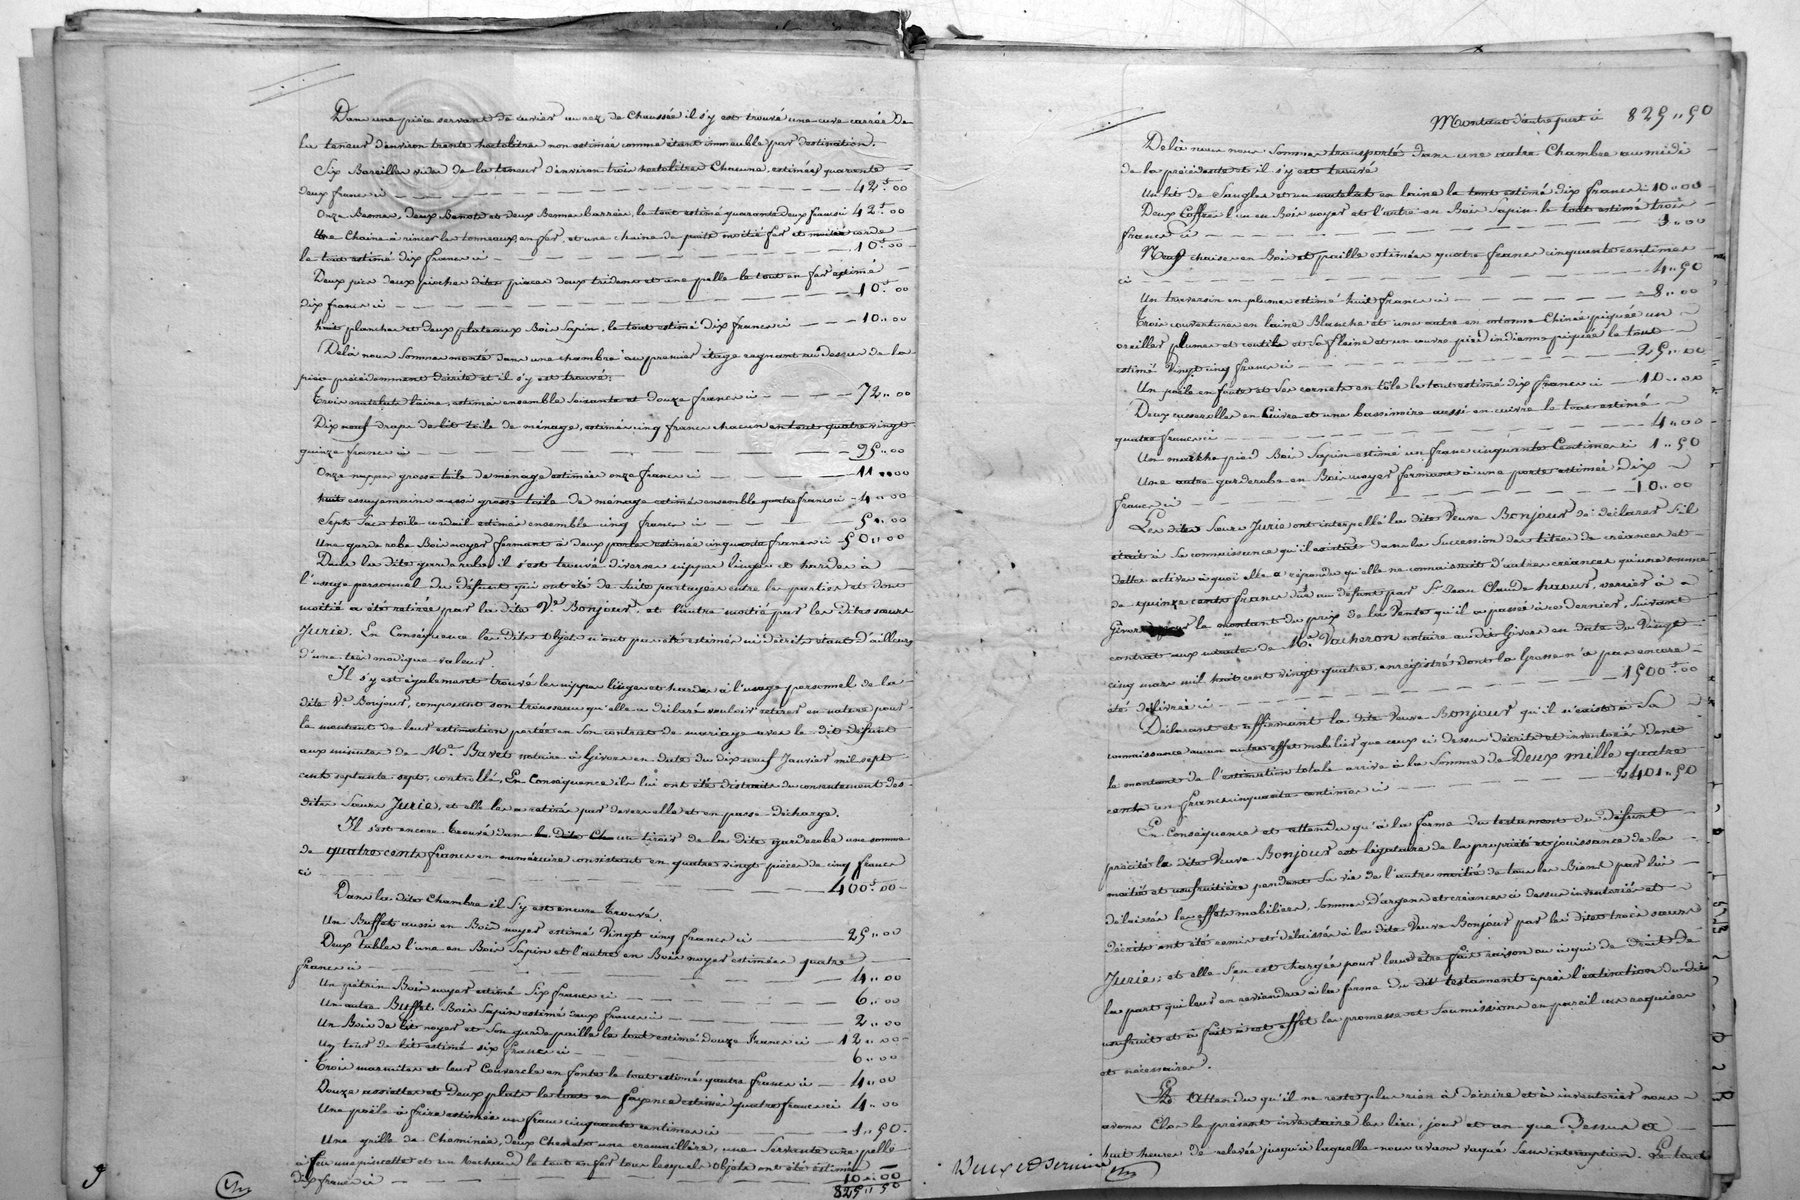 Dans une pièce servant de cuvier au rez de Chaussée il s'y est trouvé une cuve carrée De
la teneur d'environ trente hectolitres non estimée comme étant immeuble par destination.
Six Bareilles vides de la teneur d'environ trois hectolitres Chacune, estimées quarante
deux francs ci 42f.. 00
Onze Bennes, deux Benots et deux Bennes barrées, le tout estimé quarante deux francs ci 42f.. 00
Une Chaine à rincer les tonneaux, en fer, et une chaine de puits moitié fer et moitié corde
le tout estimé dix francs ci 10f.. 00
Deux pics deux pioches dites piaces deux tridents et une pelle le tout en fer estimé
dix francs ci 10f.. 00
huit planches et deux plateaux Bois Sapin, le tout estimé Dix francs ci 10.. 00
Delà nous Sommes monté dans une chambre au premier étage regnant au dessus de la
pièce précédemment décrite et il s'y est trouvé:
Trois matelats laine, estimés ensemble Soixante et douze francs ci 72.. 00
Dix neuf draps de lit toile de ménage, estimés cinq francs chacun en tout quatre vingt
quinze francs ci 95.. 00
Onze nappes grosse toile de ménage estimées onze francs ci 11.. 00
huit essuyemains aussi grosse toile de ménage estimés ensemble quatre francs ci 4.. 00
Sept Sacs toile cordail estimés ensemble cinq francs ci 5.. 00
Une garde robe Bois noyer fermant à deux portes estimée cinquante francs ci 50.. 00
Dans la dite garderobe il s'est trouvé diverses nippes linges et hardes à
l'usage personnel du défunt qui ont été de suite partagés entre les parties et dont
moitié a été retirée par la dite Ve Bonjour et l'autre moitié par les dites sœurs
Jurie. En Conséquence les dits Objets n'ont pas été estimés ni décrits étant d'ailleurs
d'une très modique valeur.
Il s'y est également trouvé les nippes linges et hardes à l'usage personnel de la
dite Ve Bonjour, composant son trousseau qu'elle a déclaré vouloir retirer en nature pour
le montant de leur estimation portée en Son contrat de mariage avec le dit défunt
aux minutes de Me. Bavet notaire à Givors en date du dix neuf Janvier mil sept
cent septante-sept, controllé, En Conséquence ils lui ont été distraits du consentement des
dites Sœurs Jurie, et elle les a retirés par devers elle et en passe décharge.
Il s'est encore trouvé dans la dite Ch un tiroir de la dite garderobe une somme
de quatre cents francs en numéraire consistant en quatre vingt pièces de cinq francs
ci 400f.. 00
Dans la dite Chambre il s'y est encore trouvé.
Un Buffet aussi en Bois noyer estimé Vingt cinq francs ci 25.. 00
Deux Tables l'une en Bois Sapin et l'autre en Bois noyer estimées quatre
francs ci 4.. 00
Un pétrin Bois noyer estimé Six francs ci 6.. 00
Un autre Buffet Bois Sapin estimé deux francs ci 2.. 00
Un Bois de lit noyer et Son garde paille le tout estimé douze francs ci 12.. 00
Un tour de lit estimé six francs ci 6.. 00
Trois marmites et leur Couvercle en fonte le tout estimé quatre francs ci 4.. 00
Douze assiettes et Deux plats le tout en fayence estimés quatre francs ci 4.. 00
Une poële à frire estimée un franc cinquante centimes ci 1.. 50
Une grille de Cheminée, deux Chenets une cremaillère, une Servante une pelle
à feu une pincette et un tachoud le tout en fer tous lesquels Objets ont été estimés
dix francs ci 10.. 00
825.. 50
Montant d'autre part ci 825.. 50
Delà nous nous Sommes transporté dans une autre Chambre au midi
de la précédente et il s'y est trouvé
Un lit de Sangles et un matelat en laine le tout estimé dix francs ci 10.. 00
Deux Coffres l'un en Bois noyer et l'autre en Bois Sapin le tout estimé trois
francs ci 3.. 00
Neuf chaises en Bois et paille estimées quatre francs cinquante centimes
ci 4.. 50
Un traversin en plumes estimé huit francs ci 8.. 00
Trois couvertures en laine Blanche et une autre en cotonne Chinée piquée un
oreiller plumes et coutils et Sa fleine et un couvre pied indienne piquée le tout
estimé Vingt cinq francs ci 25.. 00
Un poële en fonte et Ses cornets en tôle le tout estimé dix francs ci 10.. 00
Deux casserolles en Cuivre et une bassinoire aussi en cuivre le tout estimé
quatre francs ci 4.. 00
Un marche pied Bois Sapin estimé un franc cinquante Centimes ci 1.. 50
Une autre garderobe en Bois noyer fermant à une porte estimée Dix
francs ci 10.. 00
Les dites Sœurs Jurie ont interpellé la dite Veuve Bonjour de déclarer s'il
était à Sa connaissance qu'il existât dans la Succession des titres de créances et
dettes actives à quoi elle a répondu qu'elle ne connaissait d'autres créances qu'une somme
de quinze cents francs due au défunt par Sr Jean Claude haour, verrier à
Givors pour le montant du prix de la Vente qu'il a passée à ce dernier, Suivant
contrat aux minutes de Me. Vacheron notaire au dit Givors en date du Vingt
cinq mars mil huit cent vingt quatre, enregistré dont la Grosse n'a pas encore
été délivrée ci 1500f.. 00
Déclarant et affirmant la dite Veuve Bonjour qu'il n'existe à Sa
connaissance aucun autre effet mobilier que ceux ci dessus décrits et inventoriés dont
le montant de l'estimation totale arrive à la Somme de Deux mille quatre
cents un francs cinquante centimes ci 2401.. 50
En Conséquence et attendu qu'à la forme du testament du défunt
précité la dite Veuve Bonjour est légataire de la propriété et jouissance de la
moitié et usufruitière pendant Sa vie de l'autre moitié de tous les Biens par lui
délaissés les effets mobiliers, Sommes d'argent et créances ci dessus inventoriés et
décrits ont été remis et délaissés à la dite Veuve Bonjour par les dites trois sœurs
Jurie; et elle S'en est chargée pour leur être fait raison ou à qui de Droit De
la part qui leur en reviendra à la forme du dit testament après l'extinction du dit
usufruit et a fait à cet effet les promesses et Soumissions en pareil cas requises
et nécessaires.
Et Attendu qu'il ne reste plus rien à Décrire et à inventorier nous
avons Clos le présent inventaire les lieu, jour et an que Dessus à
huit heures de relevée jusqu'à laquelle nous avons vaqué Sans interruption.